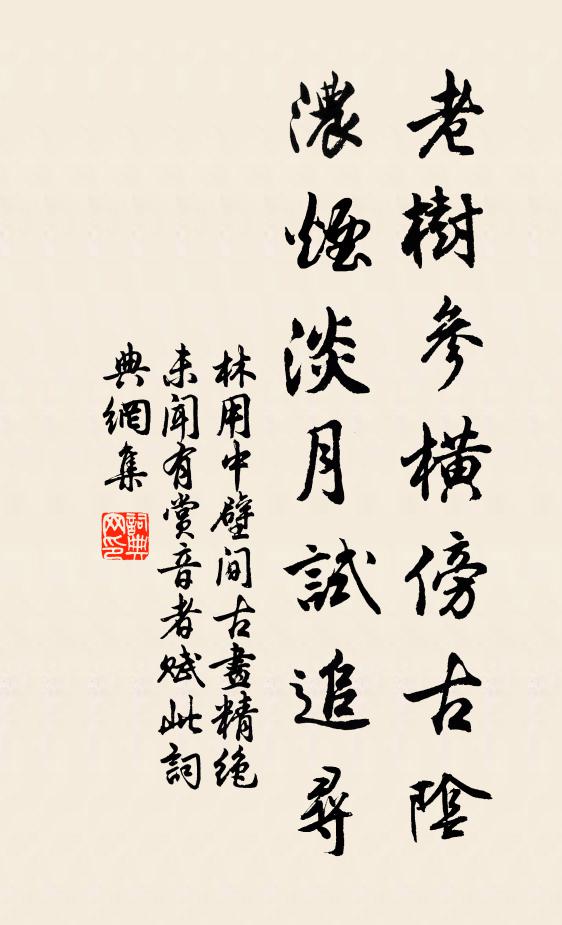 老樹參橫傍古陰
濃煙淡月試追尋
林用中壁間古畫精絶
未聞有賞音者賦此詞
典網集
詞典
网印